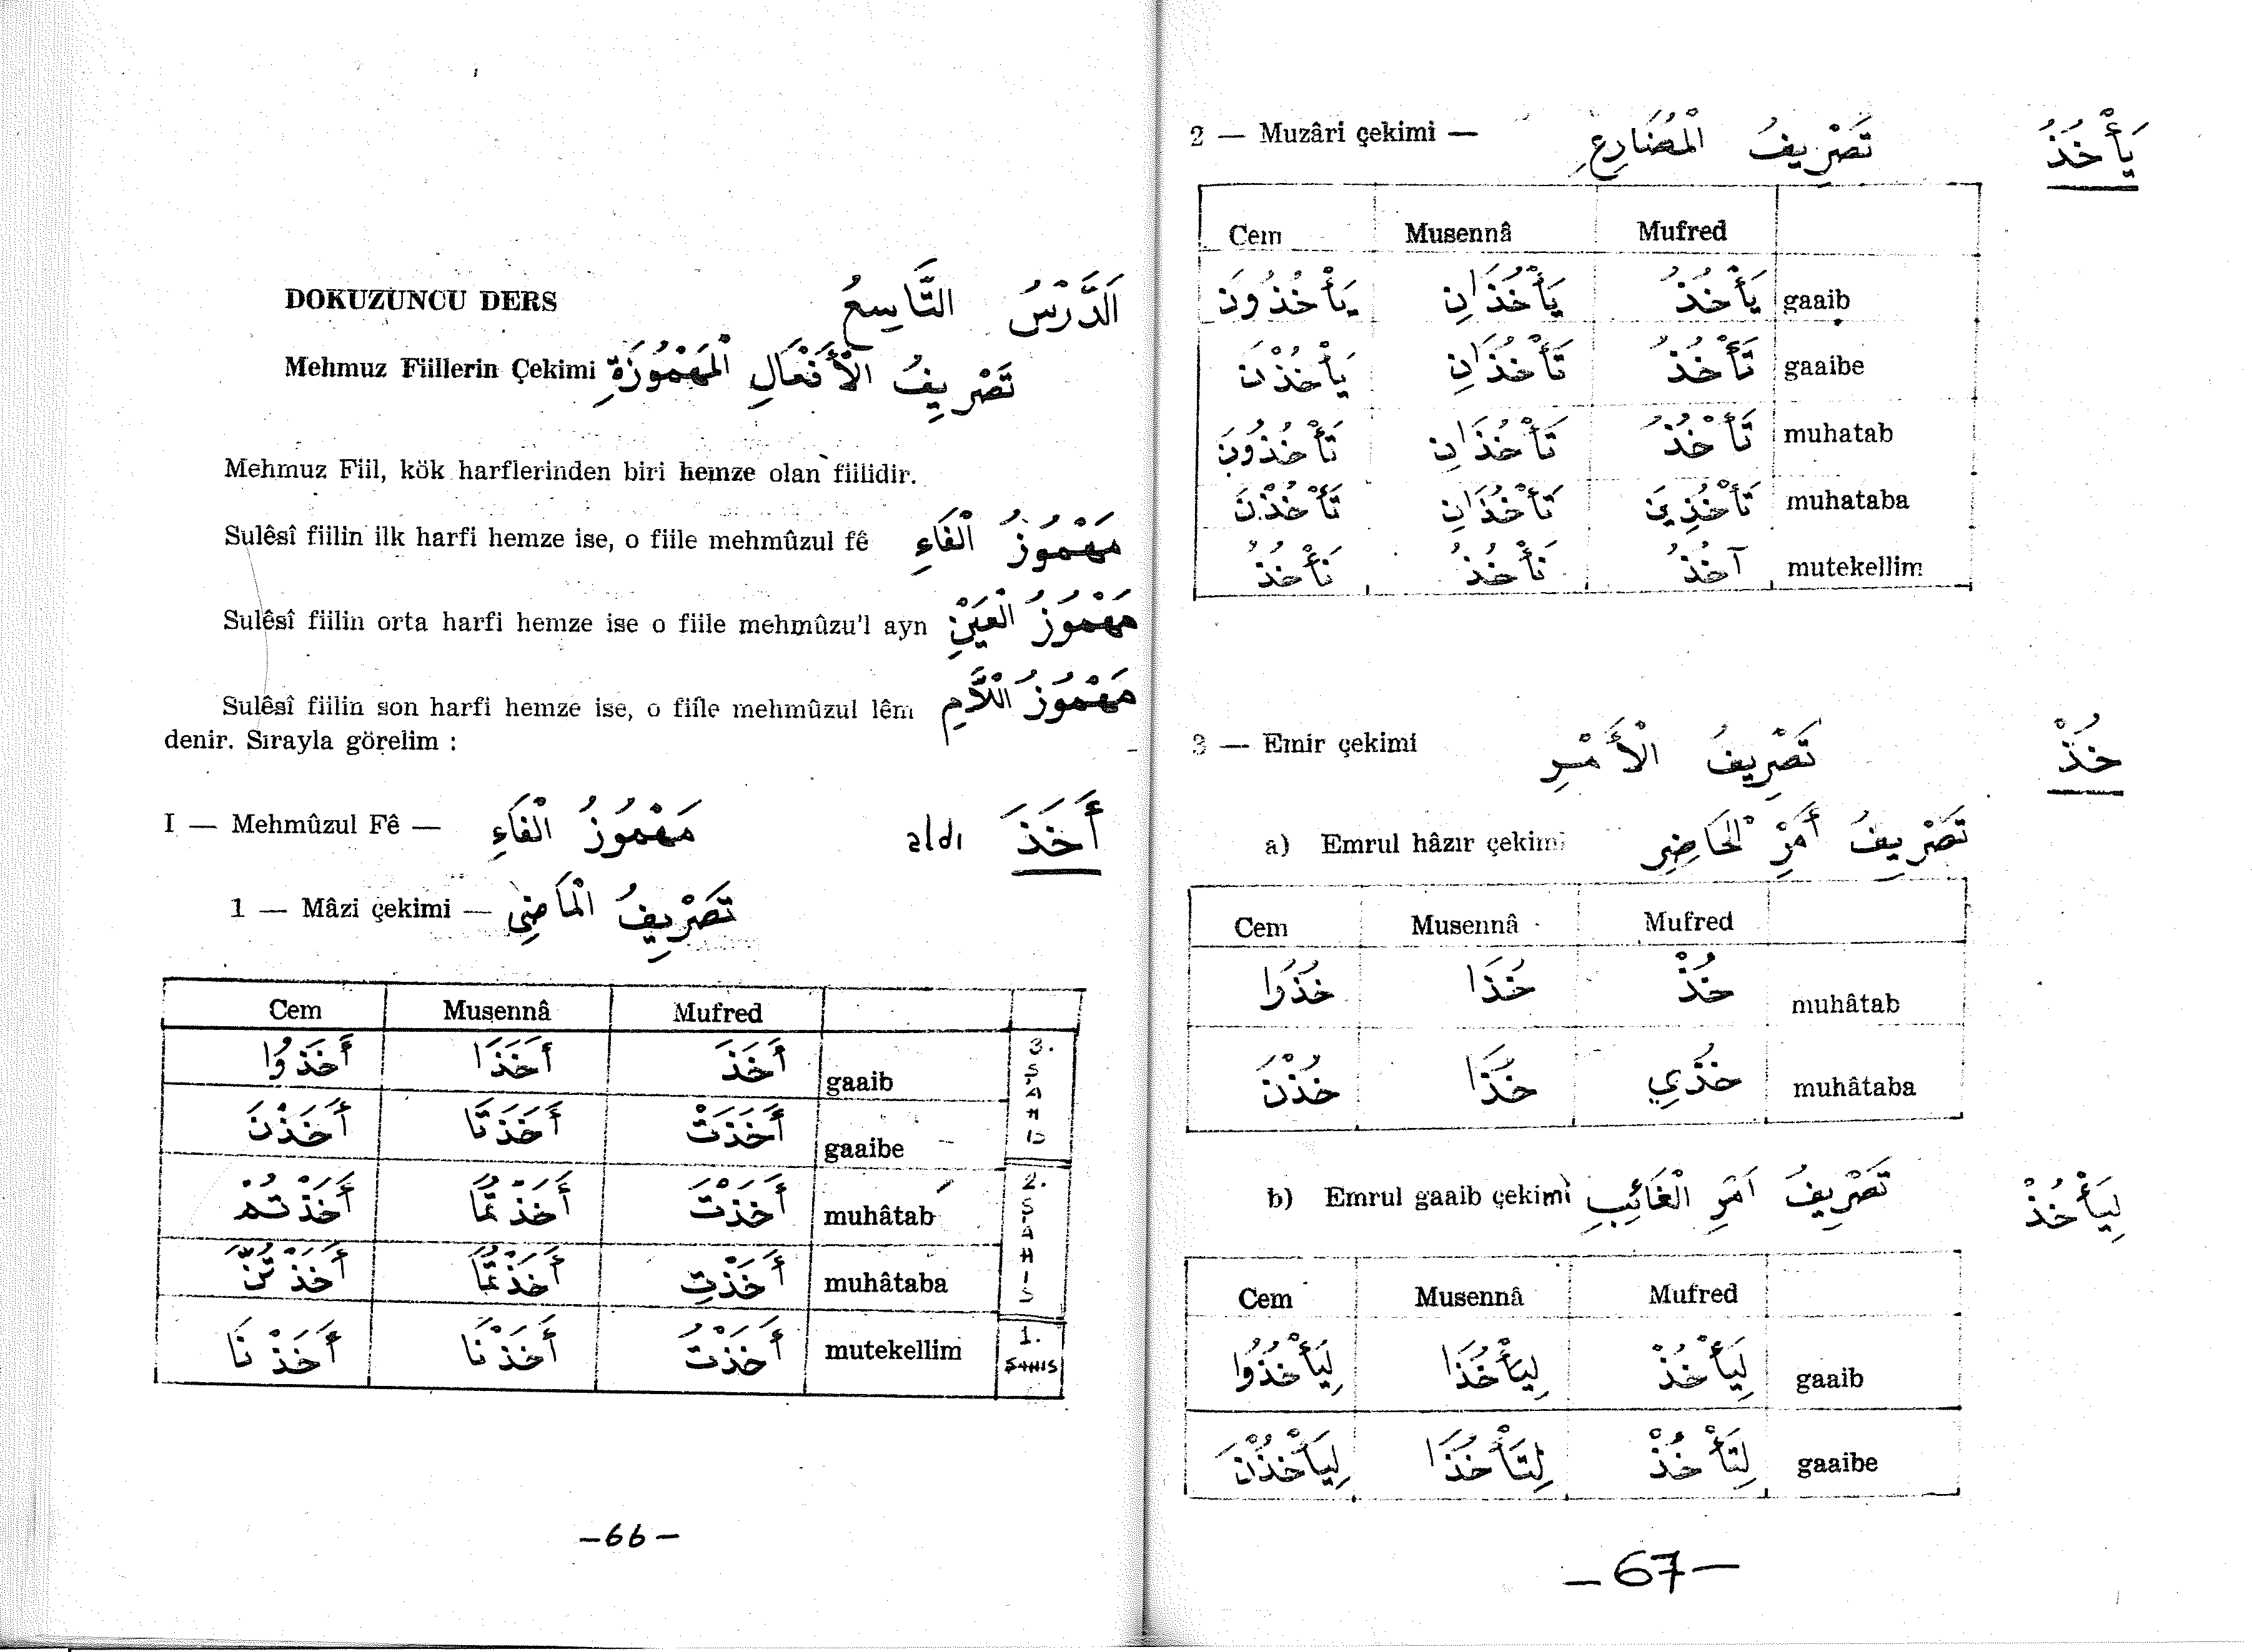 DOKUZUNCU DERS اَلدَّرْسُ التَّاسِعُ
Mehmuz Fiillerin Çekimi تَصْرِيفُ الْأَفْعَالِ الْمَهْمُوزَةِ
Mehmuz Fiil, kök harflerinden biri hemze olan fiilidir.
Sulêsî fiilin ilk harfi hemze ise, o fiile mehmûzul fê مَهْمُوزُ الْفَاءِ
Sulêsî fiilin orta harfi hemze ise o fiile mehmûzu'l ayn مَهْمُوزُ الْعَيْنِ
Sulêsî fiilin son harfi hemze ise, o fiîle mehmûzul lêm مَهْمُوزُ اللَّامِ
denir. Sırayla görelim :
I — Mehmûzul Fê — مَهْمُوزُ الْفَاءِ aldı أَخَذَ
1 — Mâzi çekimi — تَصْرِيفُ الْمَاضِي
Cem Musennâ Mufred
أَخَذُوا أَخَذَا أَخَذَ gaaib 3. ŞAHIS
أَخَذْنَ أَخَذَتَا أَخَذَتْ gaaibe
أَخَذْتُمْ أَخَذْتُمَا أَخَذْتَ muhâtab 2. ŞAHIS
أَخَذْتُنَّ أَخَذْتُمَا أَخَذْتِ muhâtaba
أَخَذْنَا أَخَذْنَا أَخَذْتُ mutekellim 1. ŞAHIS
—66—
2 — Muzâri çekimi — تَصْرِيفُ الْمُضَارِعِ يَأْخُذُ
Cem Musennâ Mufred
يَأْخُذُونَ يَأْخُذَانِ يَأْخُذُ gaaib
يَأْخُذْنَ تَأْخُذَانِ تَأْخُذُ gaaibe
تَأْخُذُونَ تَأْخُذَانِ تَأْخُذُ muhatab
تَأْخُذْنَ تَأْخُذَانِ تَأْخُذِينَ muhataba
نَأْخُذُ نَأْخُذُ آخُذُ mutekellim
3 — Emir çekimi تَصْرِيفُ الْأَمْرِ خُذْ
a) Emrul hâzır çekimi تَصْرِيفُ أَمْرِ الْحَاضِرِ
Cem Musennâ Mufred
خُذُوا خُذَا خُذْ muhâtab
خُذْنَ خُذَا خُذِي muhâtaba
b) Emrul gaaib çekimi تَصْرِيفُ اَمْرِ الْغَائِبِ لِيَأْخُذْ
Cem Musennâ Mufred
لِيَأْخُذُوا لِيَأْخُذَا لِيَأْخُذْ gaaib
لِيَأْخُذْنَ لِتَأْخُذَا لِتَأْخُذْ gaaibe
—67—